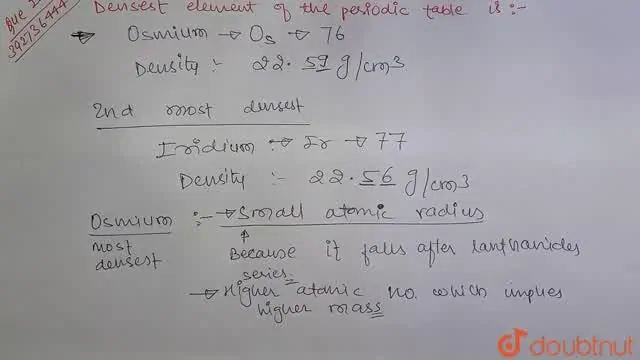 Que I
392736444
Densest element of the periodic table is :-
Osmium → Os → 76
Density :- 22.59 g/cm3
2nd most densest
Iridium → Ir → 77
Density :- 22.56 g/cm3
Osmium :- → Small atomic radius
most
densest
Because it falls after lanthanides
series
→ Higher atomic no. which implies
higher mass
doubtnut